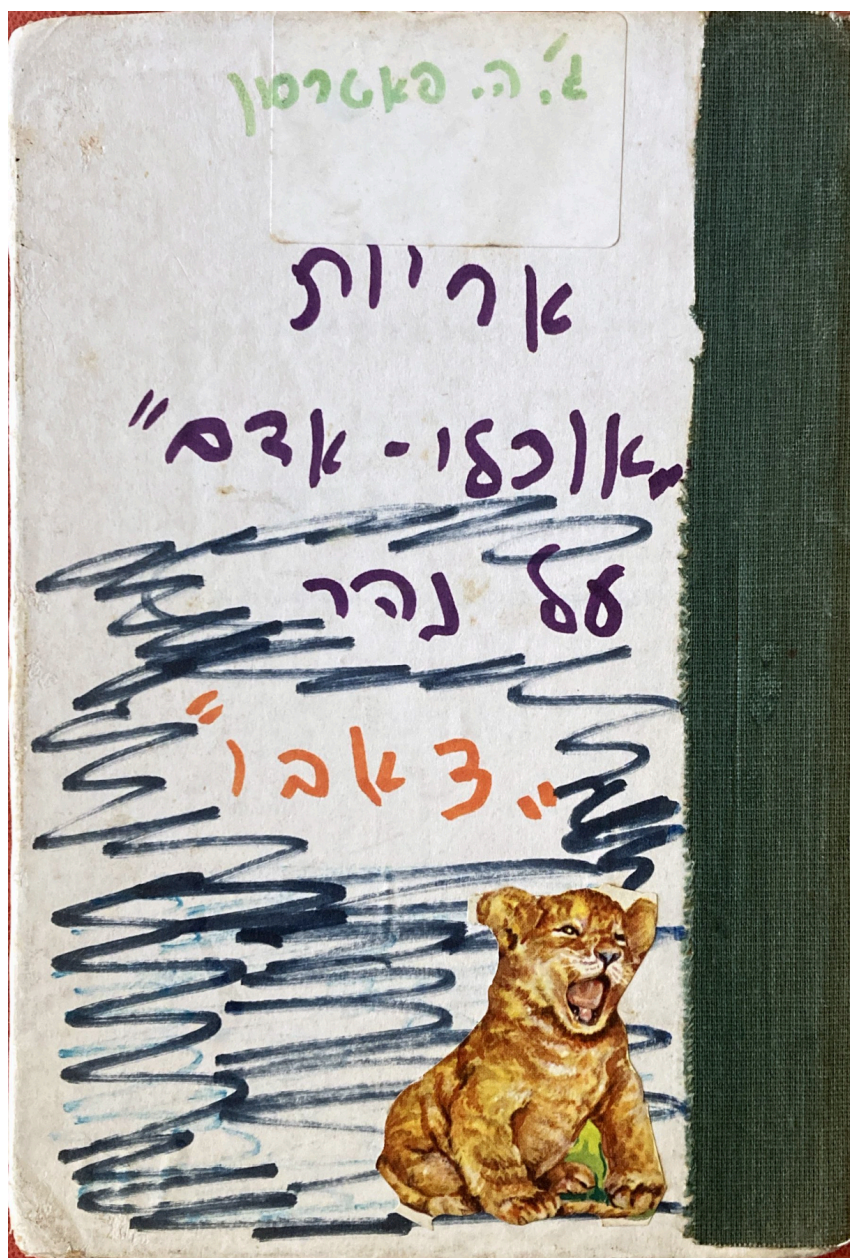 ג'. ה. פאטרסון
אריות
„אוכלי - אדם"
על נהר
„צאבו"